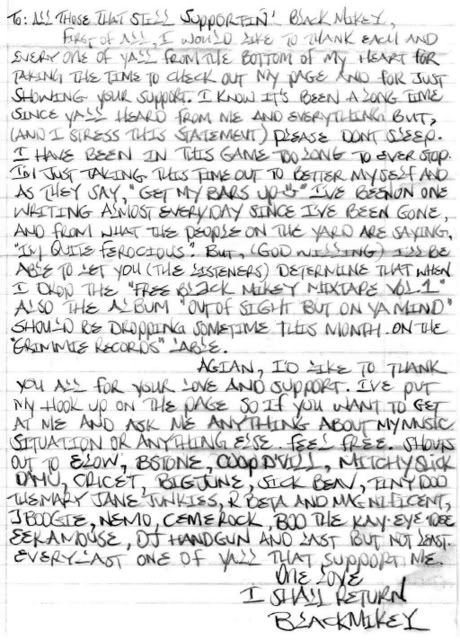 TO: ALL THOSE THAT STILL SUPPORTIN' BLACK MIKEY,
FIRST OF ALL, I WOULD LIKE TO THANK EACH AND
EVERY ONE OF YALL FROM THE BOTTOM OF MY HEART FOR
TAKING THE TIME TO CHECK OUT MY PAGE AND FOR JUST
SHOWING YOUR SUPPORT. I KNOW IT'S BEEN A LONG TIME
SINCE YALL HEARD FROM ME AND EVERYTHING. BUT,
(AND I STRESS THIS STATEMENT) PLEASE DONT SLEEP.
I HAVE BEEN IN THIS GAME TOO LONG TO EVER STOP.
I'M JUST TAKING THIS TIME OUT TO BETTER MYSELF AND
AS THEY SAY, "GET MY BARS UP" I'VE BEEN ON ONE
WRITING ALMOST EVERYDAY SINCE I'VE BEEN GONE,
AND FROM WHAT THE PEOPLE ON THE YARD ARE SAYING,
"I'M QUITE FEROCIOUS". BUT, (GOD WILLING) I'LL BE
ABLE TO LET YOU (THE LISTENERS) DETERMINE THAT WHEN
I DROP THE "FREE BLACK MIKEY MIXTAPE VOL. 1"
ALSO THE ALBUM "OUT OF SIGHT BUT ON YA MIND"
SHOULD BE DROPPING SOMETIME THIS MONTH. ON THE
"GRIMMIE RECORDS" LABLE.
AGIAN, I'D LIKE TO THANK
YOU ALL FOR YOUR LOVE AND SUPPORT. I'VE PUT
MY HOOK UP ON THE PAGE SO IF YOU WANT TO GET
AT ME AND ASK ME ANYTHING ABOUT MY MUSIC
SITUATION OR ANYTHING ELSE. FEEL FREE. SHOUTS
OUT TO ELOW, BSTONE, COOP D'VILL, MITCHY SLICK
DAMU, CRICET, BIG JUNE, SICK BEAV, TINY DOO
THE MARY JANE JUNKIES, R BETA AND MAGNIFICENT,
J BOOGIE, NEMO, CEMEROCK, BOO THE KAY-EYE
EEKAMOUSE, DJ HANDGUN AND LAST BUT NOT LEAST.
EVERY LAST ONE OF YALL THAT SUPPORT ME.
ONE LOVE
I SHALL RETURN
BLACKMIKEY